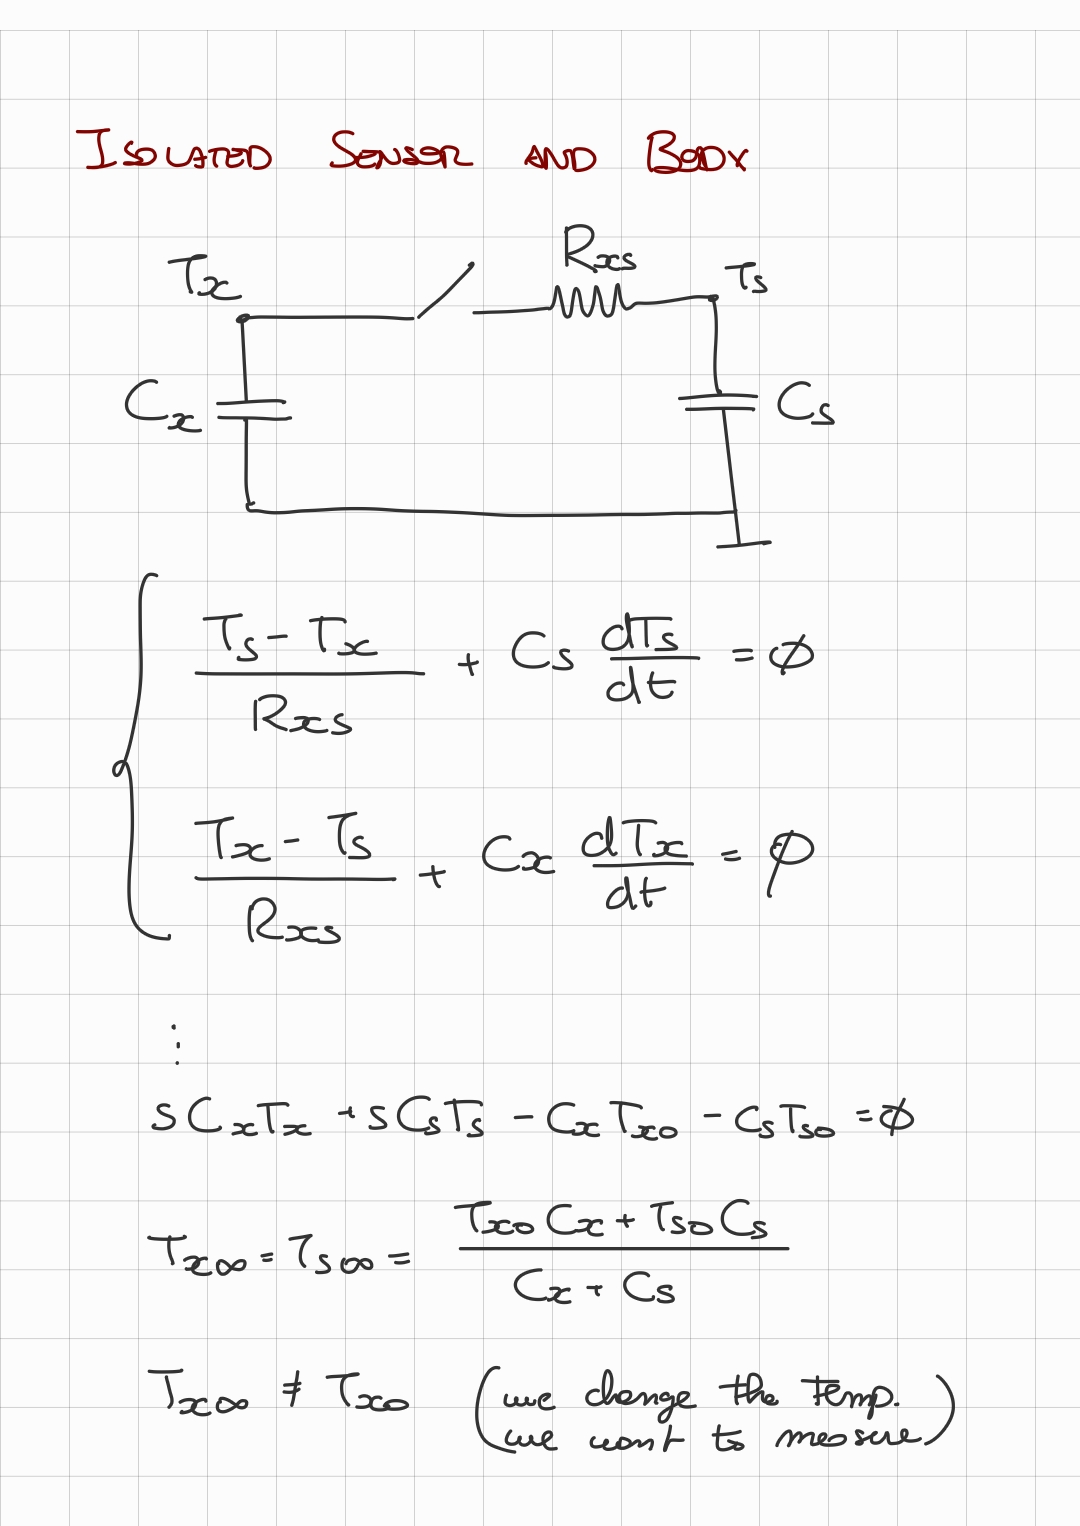 ISOLATED SENSOR AND BODY
Rxs
Tx Ts
Cx Cs
Ts - Tx / Rxs + Cs dTs/dt = ∅
Tx - Ts / Rxs + Cx dTx/dt = ∅
⋮
s Cx Tx + s Cs Ts - Cx Tx0 - Cs Ts0 = ∅
Tx∞ = Ts∞ = Tx0 Cx + Ts0 Cs / Cx + Cs
Tx∞ ≠ Tx0 (we change the temp.
we want to measure)